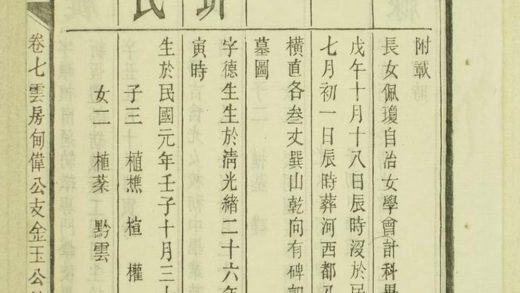 附載
長女佩瓊自治女學會計科畢
戊午十月十八日辰時歿於民
七月初一日辰時葬河西都
橫直各叁丈巽山乾向有碑
墓圖
字德生生於清光緒二十六年
寅時
生於民國元年壬子十月三十
子三 植樵 楦 權
女二 植蓁 黔雲
民
卷七雲房甸偉公支金玉公